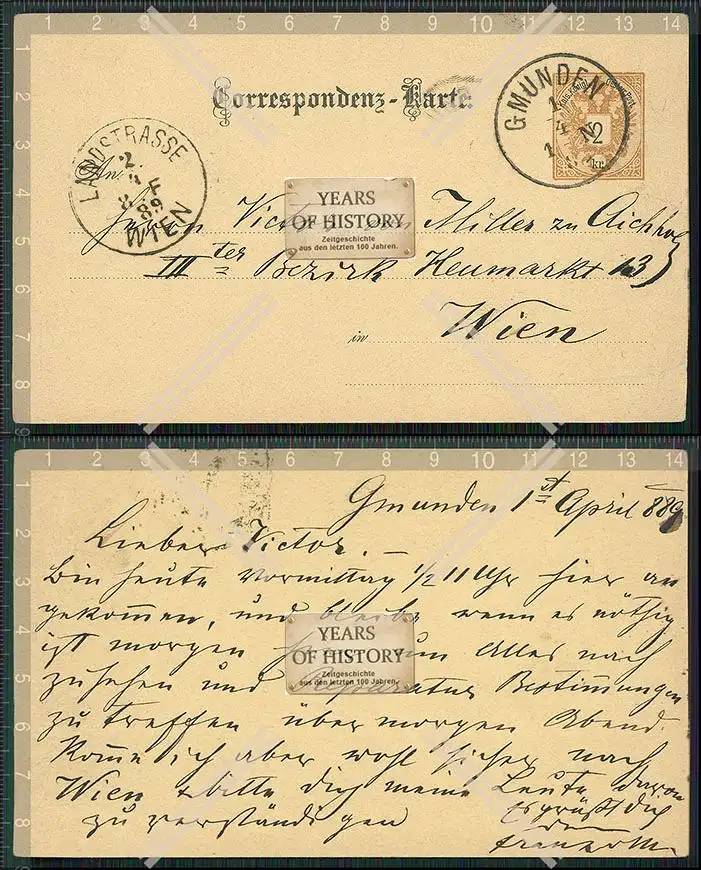 Correspondenz-Karte.
GMUNDEN
LANDSTRASSE
WIEN
An
Herrn Victor von Miller zu Aichholz
III ter Bezirk Heumarkt 13
in Wien
YEARS
OF HISTORY
Zeitgeschichte
aus den letzten 100 Jahren.
Gmunden 1st April 889
Lieber Victor. –
Bin heute Vormittag 1/2 11 Uhr hier an
gekommen, und bleibe wenn es nöthig
ist morgen um Alles nach
zusehen und Bestimmungen
zu treffen übermorgen Abend.
Komme ich aber wohl sicher nach
Wien & bitte Dich meine Leute davon
zu verständigen
Es grüßt Dich
YEARS
OF HISTORY
Zeitgeschichte
aus den letzten 100 Jahren.